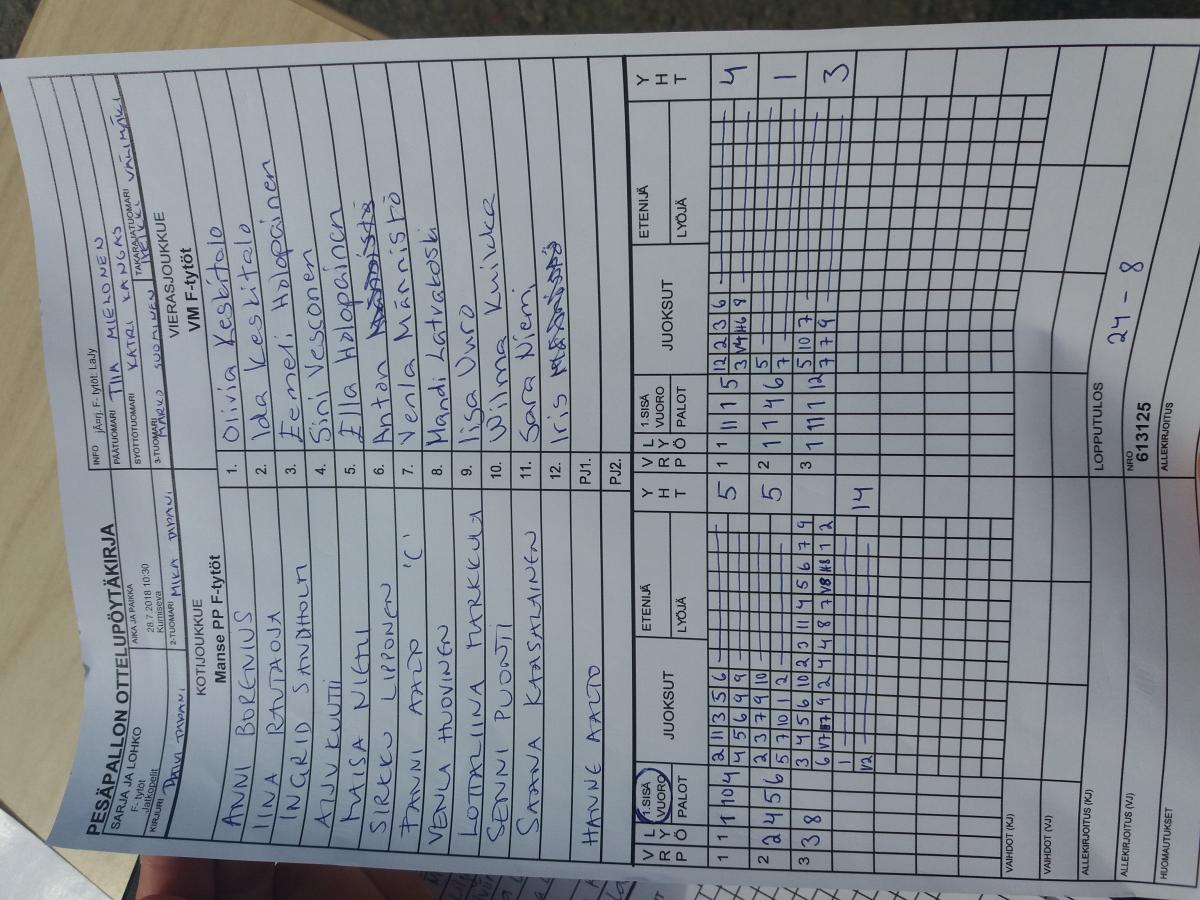 PESÄPALLON OTTELUPÖYTÄKIRJA
SARJA JA LOHKO
F- tytöt
Jatkopelit
AIKA JA PAIKKA
28.7.2018 10:30
Kumiseva
INFO jÄorj. F- tytöt: LaJy
PÄÄTUOMARI TIIA MIELONEN
SYÖTTÖTUOMARI KATRI KANGAS
KIRJURI PÄIVI TAPANI
2-TUOMARI MIKA TAPANI
3-TUOMARI MARKO SUOMINEN
TAKARAJATUOMARI HEIKKI VÄLIMÄKI
KOTIJOUKKUE
Manse PP F-tytöt
VIERASJOUKKUE
VM F-tytöt
ANNI BORENIUS 1. Olivia Keskitalo
IINA RAUTAOJA 2. Ida Keskitalo
INGRID SANDHOLM 3. Eemeli Holopainen
AIJU KUUTTI 4. Sini Vesconen
MAISA NIEMI 5. Ella Holopainen
SIRKKU LIPPONEN 6. Anton
FANNI AALTO 'C' 7. Venla Männistö
VENLA HUOVINEN 8. Mandi Latvakoski
LOTTALIINA MARKKULA 9. Iisa Vuro
SENNI PUONTI 10. Wilma Kuikka
SAANA KAASALAINEN 11. Sara Niemi
12. Iris
HANNE AALTO PJ1.
PJ2.
VRP LYÖ 1.SISÄ VUORO PALOT JUOKSUT ETENIJÄ LYÖJÄ YHT VRP LYÖ 1.SISÄ VUORO PALOT JUOKSUT ETENIJÄ LYÖJÄ YHT
1 1 1 10 4 2 11 3 5 6 5 1 1 11 1 5 12 2 3 6 4
4 5 6 9 9 3 V4 H6 9
2 2 4 5 6 2 3 7 9 10 5 2 1 1 4 6 5 1
5 7 10 1 2 7
3 3 8 3 4 5 6 10 2 3 11 4 5 6 7 9 3 1 11 11 12 5 10 7 3
6 V7 H7 9 1 2 4 4 8 7 V8 H8 1 2 7 7 9
1 14
12
VAIHDOT (KJ)
VAIHDOT (VJ)
LOPPUTULOS 24 - 8
ALLEKIRJOITUS (KJ)
NRO
613125
ALLEKIRJOITUS (VJ)
ALLEKIRJOITUS
HUOMAUTUKSET